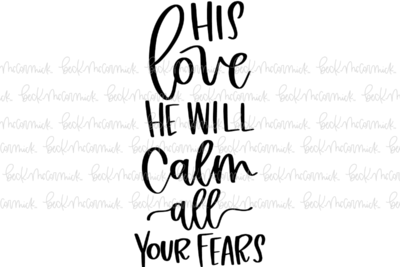 HIS
love
HE WILL
Calm
all
YOUR FEARS